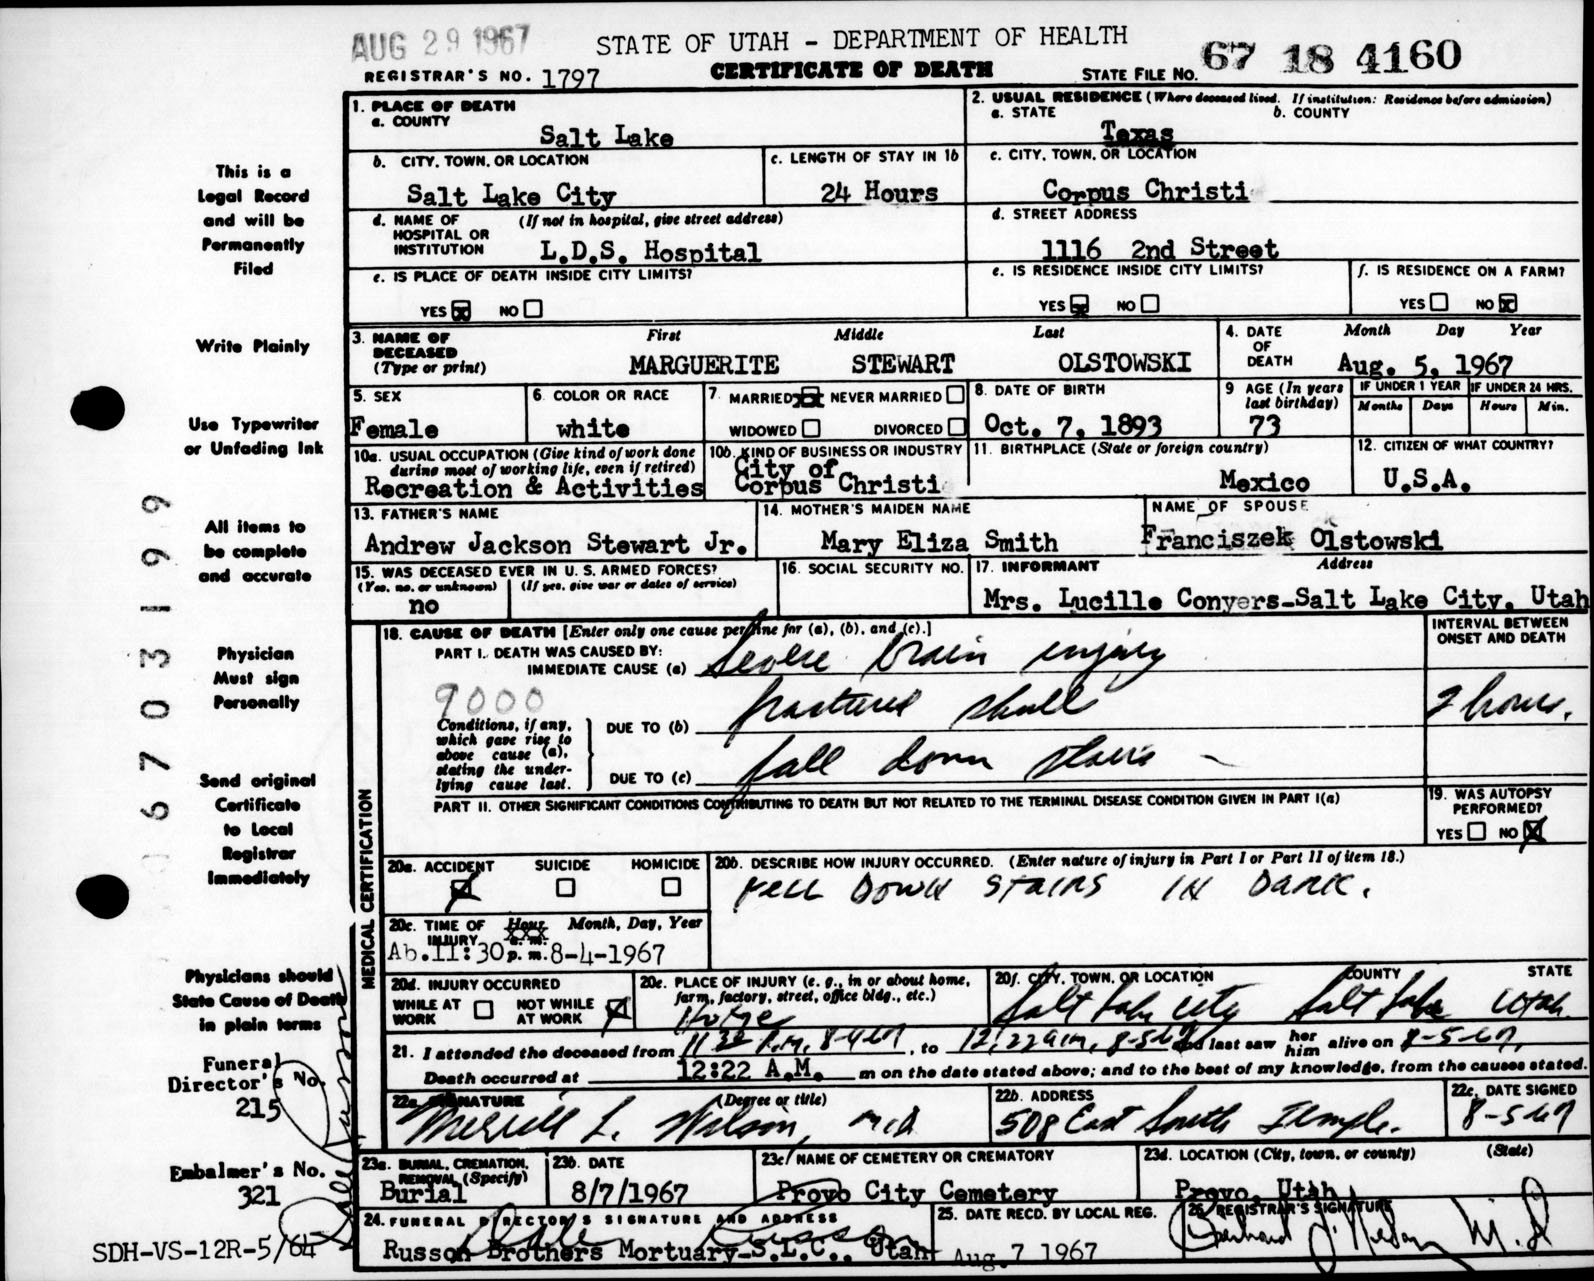 AUG 29 1967
STATE OF UTAH - DEPARTMENT OF HEALTH
CERTIFICATE OF DEATH
REGISTRAR'S NO. 1797
STATE FILE NO. 67 18 4160
1. PLACE OF DEATH
a. COUNTY
Salt Lake
2. USUAL RESIDENCE (Where deceased lived. If institution: Residence before admission)
a. STATE b. COUNTY
Texas
b. CITY, TOWN, OR LOCATION
Salt Lake City
c. LENGTH OF STAY IN 1b
24 Hours
c. CITY, TOWN, OR LOCATION
Corpus Christi
d. NAME OF HOSPITAL OR INSTITUTION (If not in hospital, give street address)
L.D.S. Hospital
d. STREET ADDRESS
1116 2nd Street
e. IS PLACE OF DEATH INSIDE CITY LIMITS?
YES x NO
e. IS RESIDENCE INSIDE CITY LIMITS?
YES x NO
f. IS RESIDENCE ON A FARM?
YES NO x
3. NAME OF DECEASED (Type or print)
First Middle Last
MARGUERITE STEWART OLSTOWSKI
4. DATE OF DEATH Month Day Year
Aug. 5, 1967
5. SEX
Female
6. COLOR OR RACE
white
7. MARRIED x NEVER MARRIED
WIDOWED DIVORCED
8. DATE OF BIRTH
Oct. 7, 1893
9 AGE (In years last birthday)
73
IF UNDER 1 YEAR IF UNDER 24 HRS.
Months Days Hours Min.
10a. USUAL OCCUPATION (Give kind of work done during most of working life, even if retired)
Recreation & Activities
10b. KIND OF BUSINESS OR INDUSTRY
City of
Corpus Christi
11. BIRTHPLACE (State or foreign country)
Mexico
12. CITIZEN OF WHAT COUNTRY?
U.S.A.
13. FATHER'S NAME
Andrew Jackson Stewart Jr.
14. MOTHER'S MAIDEN NAME
Mary Eliza Smith
NAME OF SPOUSE
Franciszek Olstowski
15. WAS DECEASED EVER IN U. S. ARMED FORCES?
(Yes, no, or unknown) (If yes, give war or dates of service)
no
16. SOCIAL SECURITY NO.
17. INFORMANT Address
Mrs. Lucille Conyers-Salt Lake City, Utah
18. CAUSE OF DEATH [Enter only one cause per line for (a), (b), and (c).]
INTERVAL BETWEEN ONSET AND DEATH
PART I. DEATH WAS CAUSED BY:
IMMEDIATE CAUSE (a) Severe brain injury
9000
Conditions, if any, which gave rise to above cause (a), stating the underlying cause last.
DUE TO (b) fractured skull
2 hours.
DUE TO (c) fall down stairs -
PART II. OTHER SIGNIFICANT CONDITIONS CONTRIBUTING TO DEATH BUT NOT RELATED TO THE TERMINAL DISEASE CONDITION GIVEN IN PART I(a)
19. WAS AUTOPSY PERFORMED?
YES NO X
MEDICAL CERTIFICATION
20a. ACCIDENT SUICIDE HOMICIDE
X
20b. DESCRIBE HOW INJURY OCCURRED. (Enter nature of injury in Part I or Part II of item 18.)
FELL DOWN STAIRS IN DARK.
20c. TIME OF INJURY Hour a. m. p. m. Month, Day, Year
Ab.11:30 8-4-1967
20d. INJURY OCCURRED
WHILE AT WORK NOT WHILE AT WORK X
20e. PLACE OF INJURY (e. g., in or about home, farm, factory, street, office bldg., etc.)
20f. CITY, TOWN, OR LOCATION COUNTY STATE
Salt Lake City Salt Lake Utah.
21. I attended the deceased from 11 30 P.M. 8-4-67, to 12:22 a.m. 8-5-67 and last saw her him alive on 8-5-67.
Death occurred at 12:22 A.M. m on the date stated above; and to the best of my knowledge, from the causes stated.
22a. SIGNATURE (Degree or title)
Merrill L. Wilson, M.D
22b. ADDRESS
508 East South Temple.
22c. DATE SIGNED
8-5-67
23a. BURIAL, CREMATION, REMOVAL (Specify)
Burial
23b. DATE
8/7/1967
23c. NAME OF CEMETERY OR CREMATORY
Provo City Cemetery
23d. LOCATION (City, town, or county) (State)
Provo, Utah
24. FUNERAL DIRECTOR'S SIGNATURE AND ADDRESS
Dale Russon
Russon Brothers Mortuary-S.L.C., Utah
25. DATE RECD. BY LOCAL REG.
Aug. 7 1967
26. REGISTRAR'S SIGNATURE
This is a
Legal Record
and will be
Permanently
Filed
Write Plainly
Use Typewriter
or Unfading Ink
All items to
be complete
and accurate
Physician
Must sign
Personally
Send original
Certificate
to Local
Registrar
Immediately
Physicians should
State Cause of Death
in plain terms
Funeral
Director's No.
215
Embalmer's No.
321
SDH-VS-12R-5/64
Dale Russon